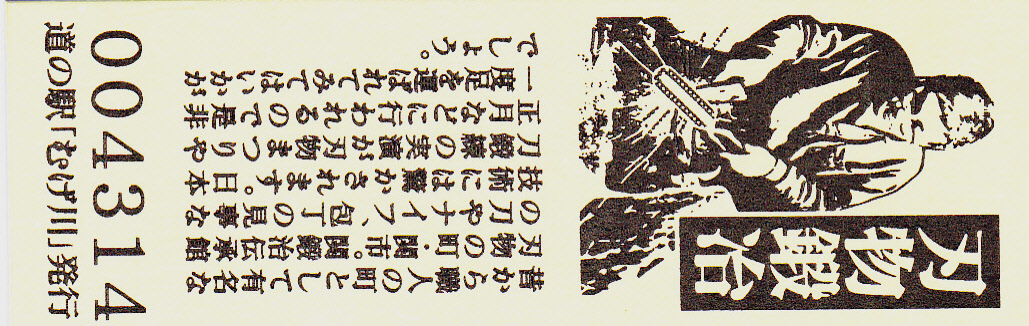 刃物
鍛冶
昔から職人の町として有名な
刃物の町・関市。関鍛冶伝承館
の刀やナイフ、包丁の見事な
技術には驚かされます。日本
刀鍛錬の実演が刃物まつりや
正月などに行われるので是非
一度足を運ばれてみてはいかが
でしょう。
004314
道の駅「むげ川」発行